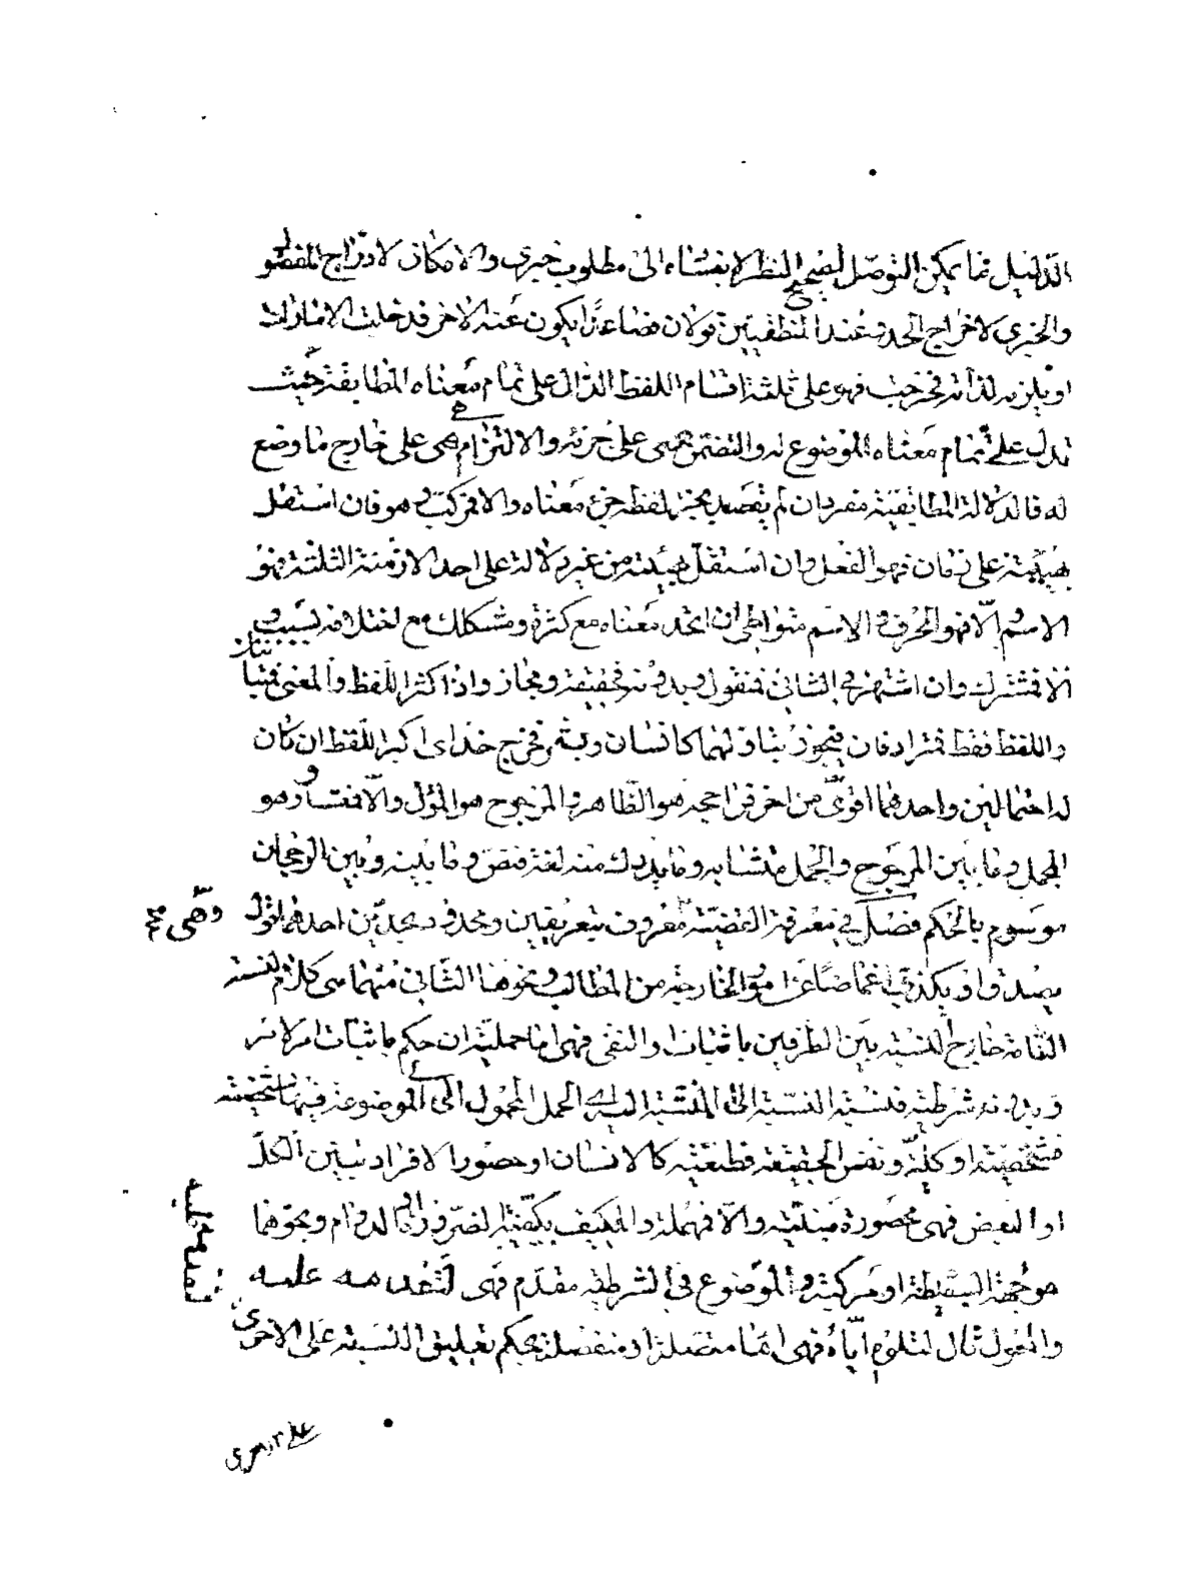 الدليل ما يمكن التوصل بصحيح النظر لا بفساده الى مطلوب خبري والامكان لادراج المغفول
والخبري لاخراج الحد عند المنطقيين قولان فصاعدا يكون عنه الاخر فدخلت الامارات
او يلزم لذاته فخرجت فهو على ثلثة اقسام اللفظ الدال على تمام معناه المطابقة حيث
تدل على تمام معناه الموضوع له والتضمن هي على جزئه والالتزام هي على خارج ما وضع
له فالدلالة المطابقية مفرد ان لم يقصد بجزء لفظه جزء معناه والا فمركب وهو فان استقل
بهيئته على زمان فهو الفعل وان استقل بهيئته من غير دلالة على احد الازمنة الثلثة فهو
الاسم والا فهو الحرف والاسم متواطي ان اتحد معناه مع كثرة ومشكك مع اختلافه
والا فمشترك وان اشتهر في الثاني فمنقول وبدونه فحقيقة ومجاز واذا كثر اللفظ والمعنى
واللفظ فقط فمترادفان فيجوز كانسان وبشر فخرج خداي اكبر اللفظ ان كان
له احتمالين واحدهما اقوى من اخر فراجحه هو الظاهر والمرجوح هو المؤل والا وهو
المجمل وما بين المرجوح والمجمل متشابه وما يدرك منه لغة فنص وما بينه وبين الرجحان
موسوم بالحكم فصل في معرفة القضية معروف بتعريفين ومحدود بحدين احدهما قول
يصدق او يكذب اغماضا عن امور الخارجية من المطالب ونحوها الثاني منهما هي كلام لنسبته
التامة خارج النسبة بين الطرفين باثبات او النفي فهي اما حملية ان حكم باثبات امر لاخر
وبدونه شرطية فنسبة النسبة الى المنتسبة اليه اي الحمل المحمول الى الموضوعة فيها
فشخصية او كلية ونفس الحقيقة فطبيعية كالانسان او حصور الافراد تبيين الكل
او البعض فهي محصورة مبينة والا فمهملة والمكيف بكيفية الضرورة والدوام ونحوها
موجهة البسيطة او مركبة والموضوع في الشرطية مقدم فهي
والمحمول تال لتلوه اياه فهي اما متصلة او منفصلة بحكم تعليق النسبة على الاخرى